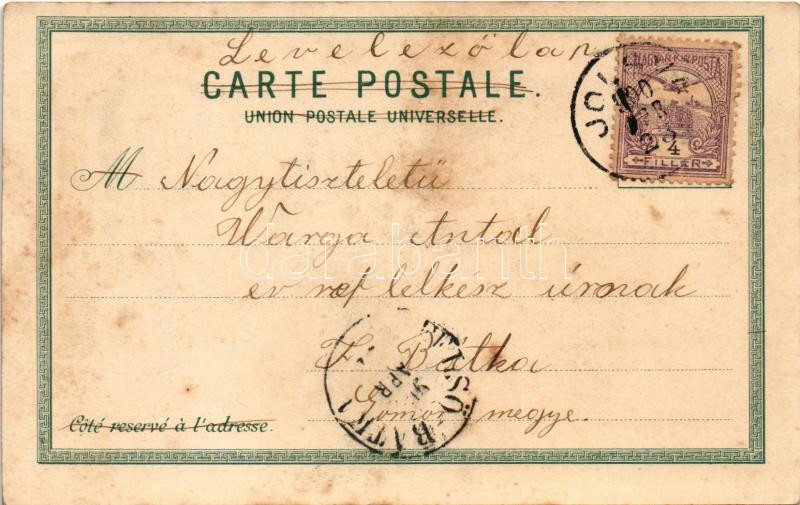 Levelezőlap
CARTE POSTALE.
UNION POSTALE UNIVERSELLE.
MAGYAR KIR POSTA
4
FILLÉR
M Nagytiszteletü
Warga Antal
ev ref lelkész úrnak
F. Bátka
Gömör megye.
Côté reservé à l'adresse.
APR
darabanth